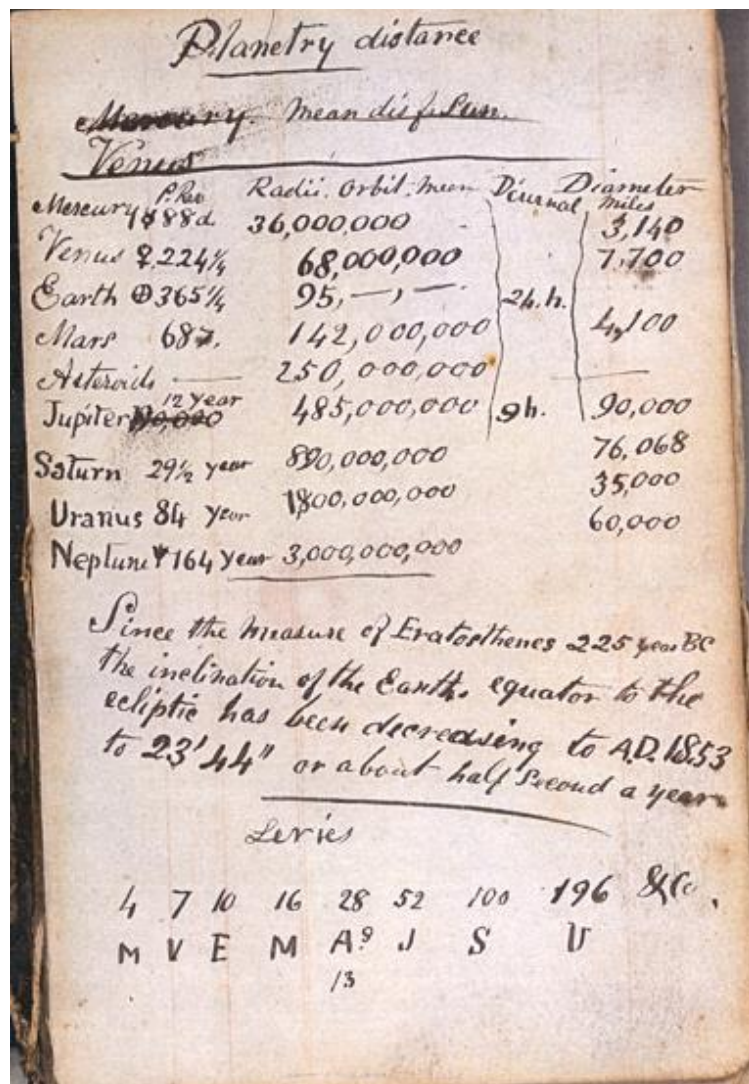 Planetry distance
Mercury. Mean dis f. Sun.
Venus
P. Rev Radii. Orbit. Mean Diurnal Diameter miles
Mercury ☿ 88d. 36,000,000 3,140
Venus ♀ 224¼ 68,000,000 7,700
Earth ⊕ 365¼ 95,—,—. 24.h.
Mars 687. 142,000,000 4,100
Asteroids — 250,000,000 —
Jupiter 12 year 485,000,000 9h. 90,000
Saturn 29½ year 890,000,000 76,068
Uranus 84 year 1,800,000,000 35,000
Neptune ♆ 164 year 3,000,000,000 60,000
Since the measure of Eratosthenes 225 year BC
the inclination of the Earths equator to the
ecliptic has been decreasing to A.D. 1853
to 23' 44" or about half second a year
Series
4 7 10 16 28 52 100 196 &c.
M V E M As J S U
13